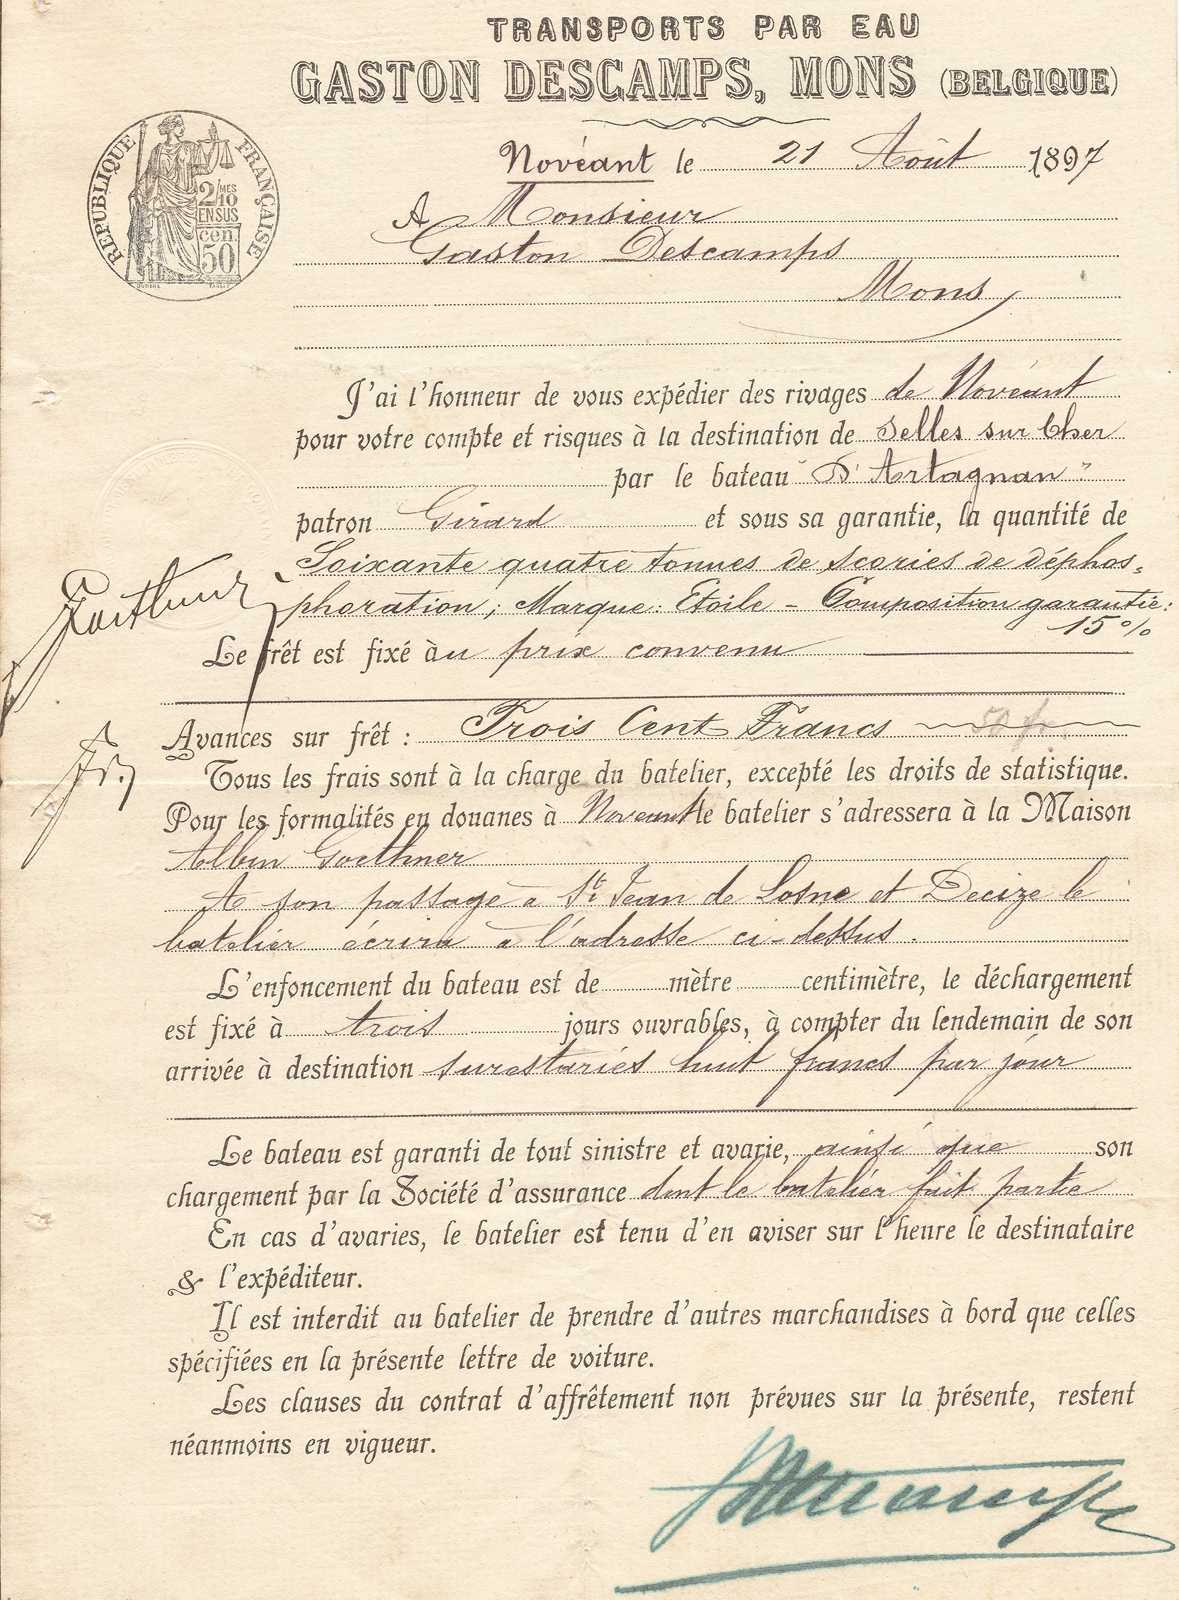 TRANSPORTS PAR EAU
GASTON DESCAMPS, MONS (BELGIQUE)
Novéant le 21 Août 1897
RÉPUBLIQUE FRANÇAISE
2/10 MES
EN SUS
cen.
50
A Monsieur
Gaston Descamps
Mons
J'ai l'honneur de vous expédier des rivages de Novéant
pour votre compte et risques à la destination de Selles sur Cher
par le bateau "D'Artagnan"
patron Girard et sous sa garantie, la quantité de
Soixante quatre tonnes de scories de déphos-
phoration; Marque: Etoile - Composition garantie:
15%
Le frêt est fixé au prix convenu
Avances sur frêt: Trois Cent Francs 50 fr.
Tous les frais sont à la charge du batelier, excepté les droits de statistique.
Pour les formalités en douanes à Novéant le batelier s'adressera à la Maison
Albin Goethner
A son passage à St. Jean de Losne et Decize le
batelier écrira à l'adresse ci-dessus.
L'enfoncement du bateau est de mètre centimètre, le déchargement
est fixé à trois jours ouvrables, à compter du lendemain de son
arrivée à destination surestaries huit francs par jour
Le bateau est garanti de tout sinistre et avarie, ainsi que son
chargement par la Société d'assurance dont le batelier fait partie
En cas d'avaries, le batelier est tenu d'en aviser sur l'heure le destinataire
& l'expéditeur.
Il est interdit au batelier de prendre d'autres marchandises à bord que celles
spécifiées en la présente lettre de voiture.
Les clauses du contrat d'affrêtement non prévues sur la présente, restent
néanmoins en vigueur.